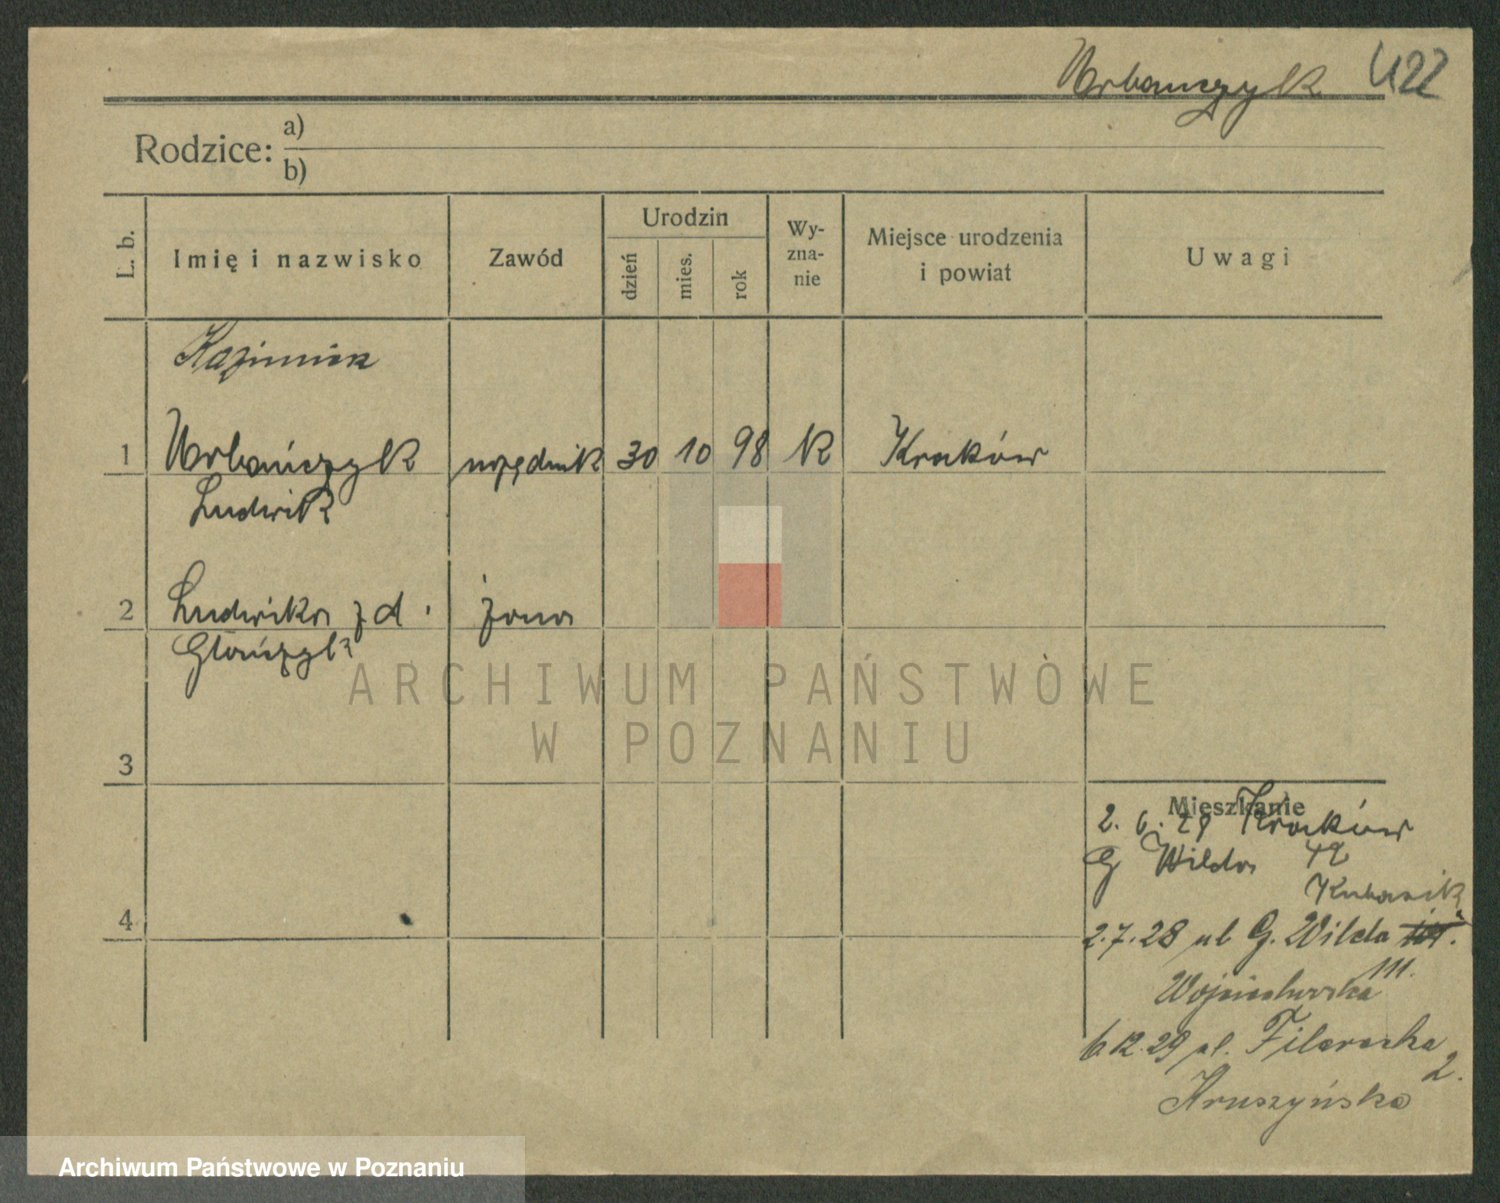 Urbańczyk U22
Rodzice: a)
b)
L. b. Imię i nazwisko Zawód Urodzin dzień mies. rok Wyzna-nie Miejsce urodzenia i powiat Uwagi
Kazimierz
1 Urbańczyk urzędnik 30 10 98 k Kraków
Ludwik
2 Ludwika z d. żona
ARCHIWUM PAŃSTWOWE
W POZNANIU
3
Mieszkanie
2. 6. Kraków
G Wilda
Kubasik
4
2.7.28 ul G. Wilda
111.
Wojciechowska
6.12.29 ul. Filarecka
2.
Kruszyńska
Archiwum Państwowe w Poznaniu